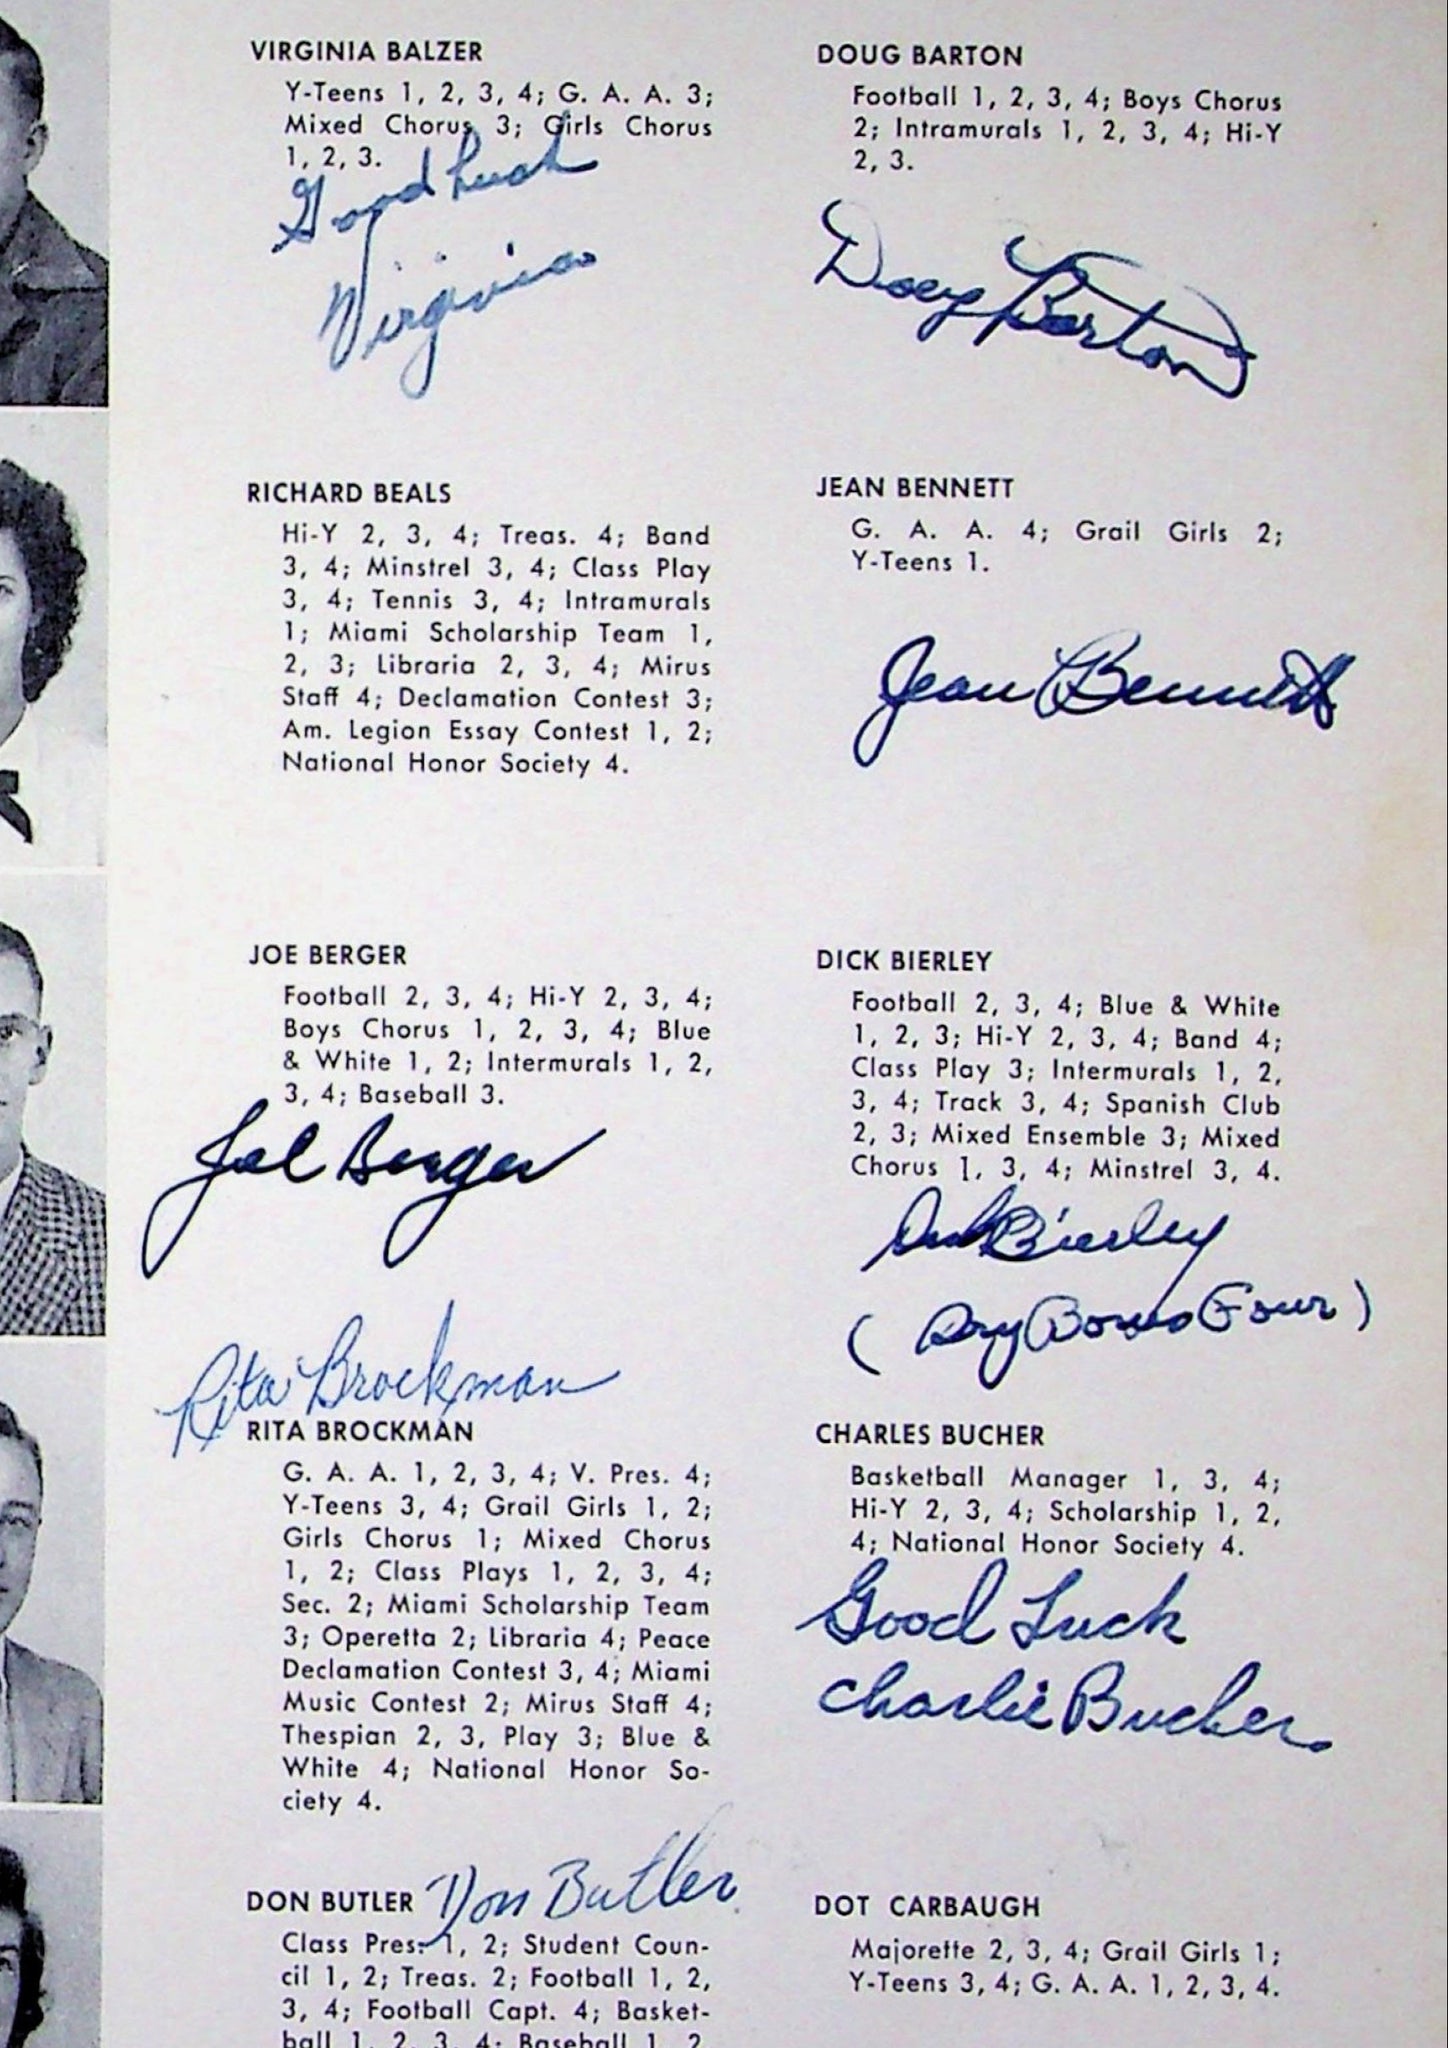 VIRGINIA BALZER
Y-Teens 1, 2, 3, 4; G. A. A. 3;
Mixed Chorus 3; Girls Chorus
1, 2, 3.
Good Luck
Virginia
DOUG BARTON
Football 1, 2, 3, 4; Boys Chorus
2; Intramurals 1, 2, 3, 4; Hi-Y
2, 3.
Doug Barton
RICHARD BEALS
Hi-Y 2, 3, 4; Treas. 4; Band
3, 4; Minstrel 3, 4; Class Play
3, 4; Tennis 3, 4; Intramurals
1; Miami Scholarship Team 1,
2, 3; Libraria 2, 3, 4; Mirus
Staff 4; Declamation Contest 3;
Am. Legion Essay Contest 1, 2;
National Honor Society 4.
JEAN BENNETT
G. A. A. 4; Grail Girls 2;
Y-Teens 1.
Jean Bennett
JOE BERGER
Football 2, 3, 4; Hi-Y 2, 3, 4;
Boys Chorus 1, 2, 3, 4; Blue
& White 1, 2; Intermurals 1, 2,
3, 4; Baseball 3.
Joe Berger
DICK BIERLEY
Football 2, 3, 4; Blue & White
1, 2, 3; Hi-Y 2, 3, 4; Band 4;
Class Play 3; Intermurals 1, 2,
3, 4; Track 3, 4; Spanish Club
2, 3; Mixed Ensemble 3; Mixed
Chorus 1, 3, 4; Minstrel 3, 4.
Dick Bierley
( Four )
Rita Brockman
RITA BROCKMAN
G. A. A. 1, 2, 3, 4; V. Pres. 4;
Y-Teens 3, 4; Grail Girls 1, 2;
Girls Chorus 1; Mixed Chorus
1, 2; Class Plays 1, 2, 3, 4;
Sec. 2; Miami Scholarship Team
3; Operetta 2; Libraria 4; Peace
Declamation Contest 3, 4; Miami
Music Contest 2; Mirus Staff 4;
Thespian 2, 3, Play 3; Blue &
White 4; National Honor So-
ciety 4.
CHARLES BUCHER
Basketball Manager 1, 3, 4;
Hi-Y 2, 3, 4; Scholarship 1, 2,
4; National Honor Society 4.
Good Luck
Charlie Bucher
DON BUTLER Don Butler
Class Pres. 1, 2; Student Coun-
cil 1, 2; Treas. 2; Football 1, 2,
3, 4; Football Capt. 4; Basket-
ball 1, 2, 3, 4; Baseball 1, 2,
DOT CARBAUGH
Majorette 2, 3, 4; Grail Girls 1;
Y-Teens 3, 4; G. A. A. 1, 2, 3, 4.